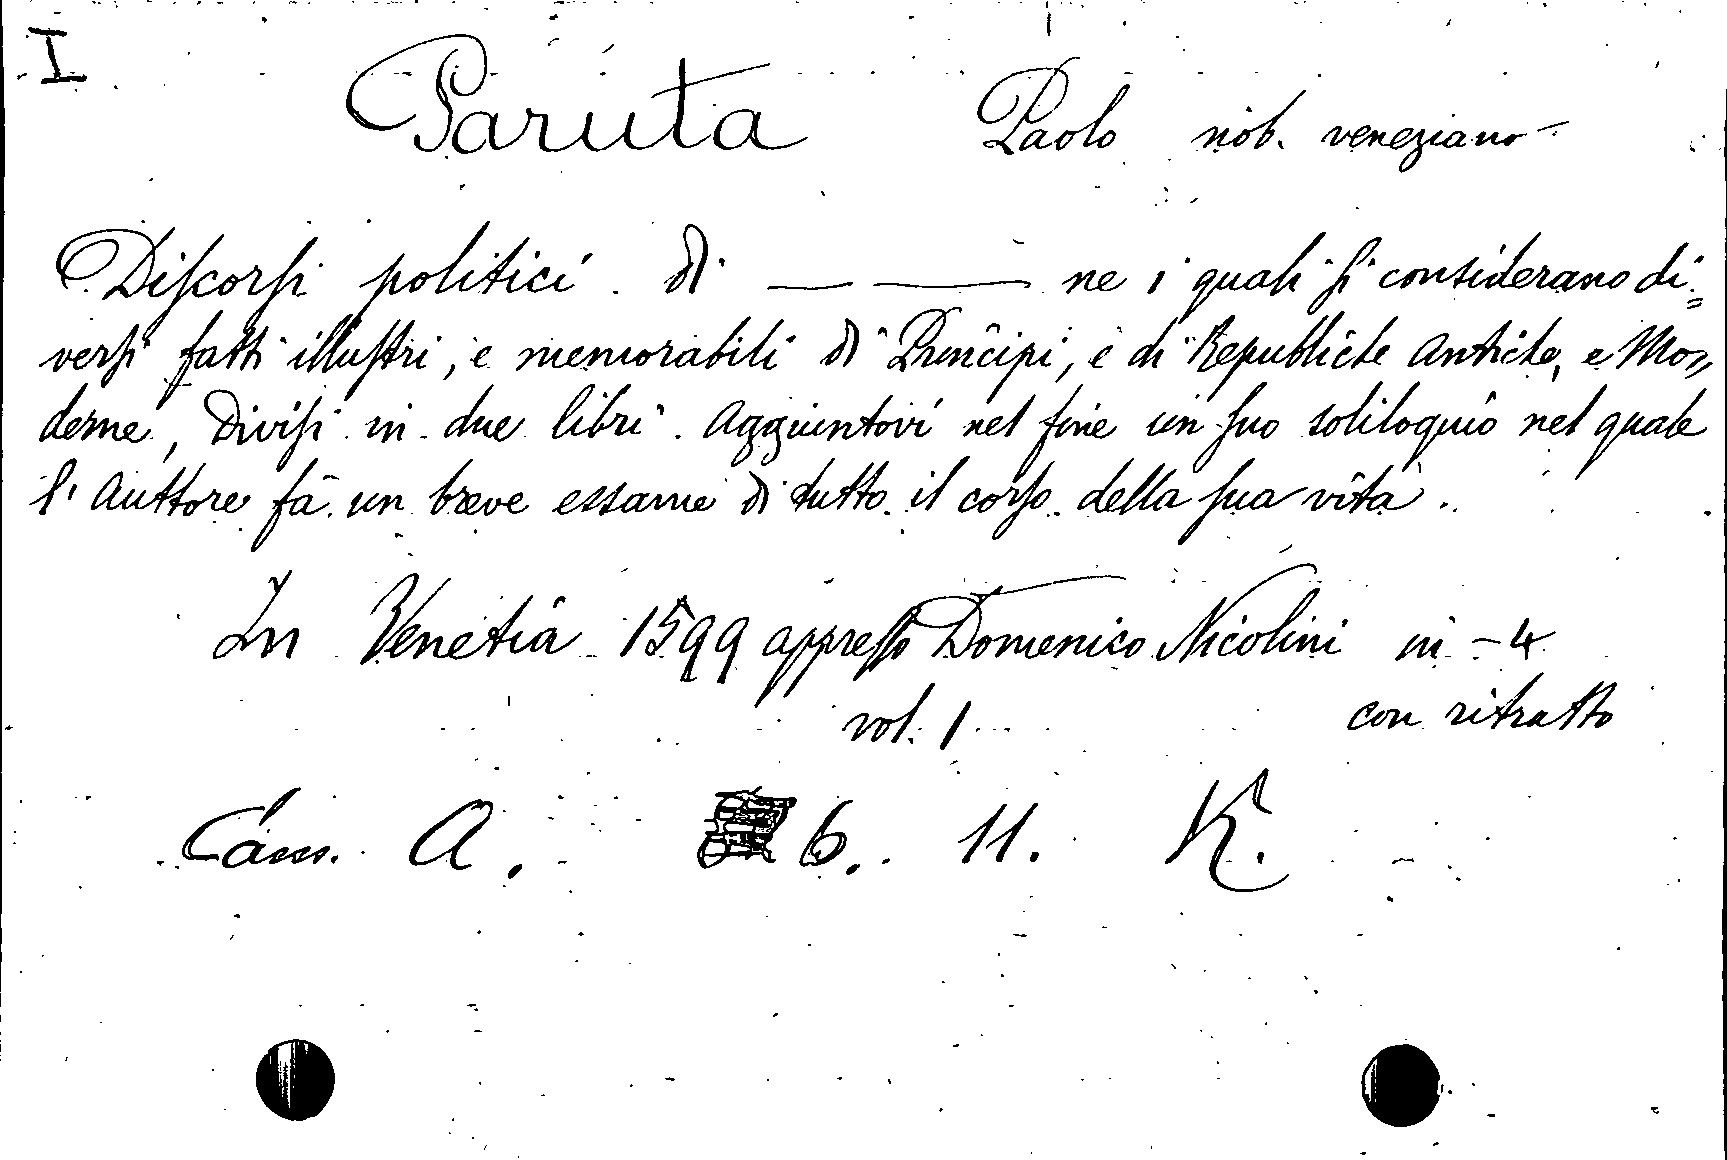 I
Paruta Paolo nob. veneziano
Diſcorſi politici di — — ne i quali ſi considerano di=
verſi fatti illuſtri, e memorabili di Principi, e di Republiche Antiche, e Mo=
derne, Diviſi in due libri. Aggiuntovi nel fine un ſuo soliloquio nel quale
l'Auttore fà un breve essame di tutto il corſo della ſua vita.
In Venetia 1599 appreſſo Domenico Nicolini in-4
vol. 1 con ritratto
Cam. A. 6. 11. K.